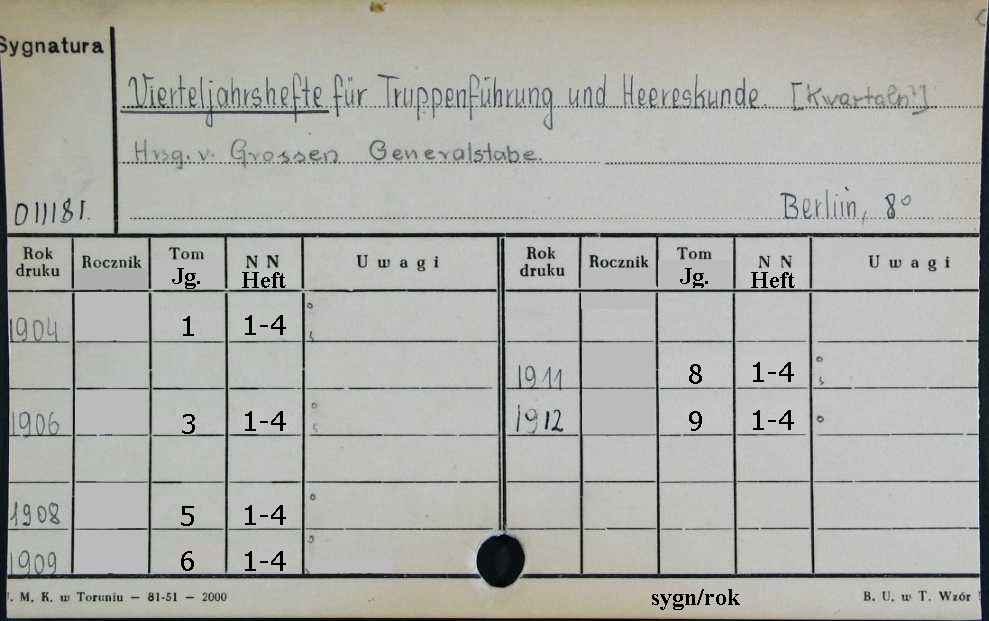 Sygnatura
Vierteljahrshefte für Truppenführung und Heereskunde. [Kwartaln.]
Hrsg. v. Grossen Generalstabe.
011181.
Berlin, 8°
Rok druku Rocznik Tom Jg. N N Heft Uwagi Rok druku Rocznik Tom Jg. N N Heft Uwagi
1904 1 1-4
1911 8 1-4
1906 3 1-4 1912 9 1-4
1908 5 1-4
1909 6 1-4
. M. K. w Toruniu — 81-51 — 2000 sygn/rok B. U. w T. Wzór